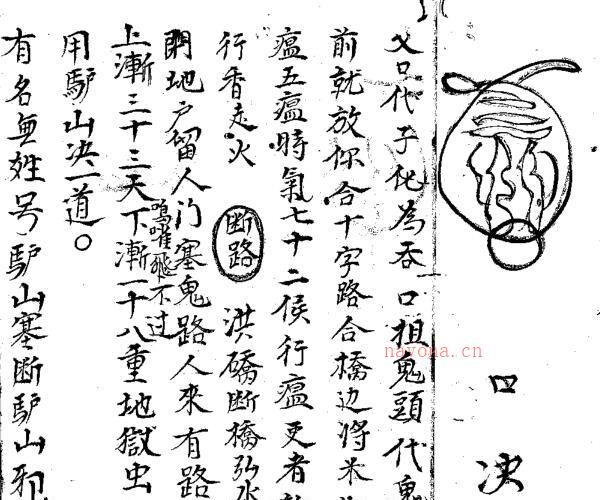 口决
父口代子化為吞口祖鬼頭代鬼
前就放你合十字路合橋边將米
瘟五瘟時氣七十二候行瘟更者
行香走火 断路 洪磽断橋弘水
開地户留人门塞鬼路人來有路
鳴嘊飛不过
上漸三十三天下漸一十八重地獄虫
用馿山决一道。
有名無姓号馿山塞断馿山邪
nayona.cn